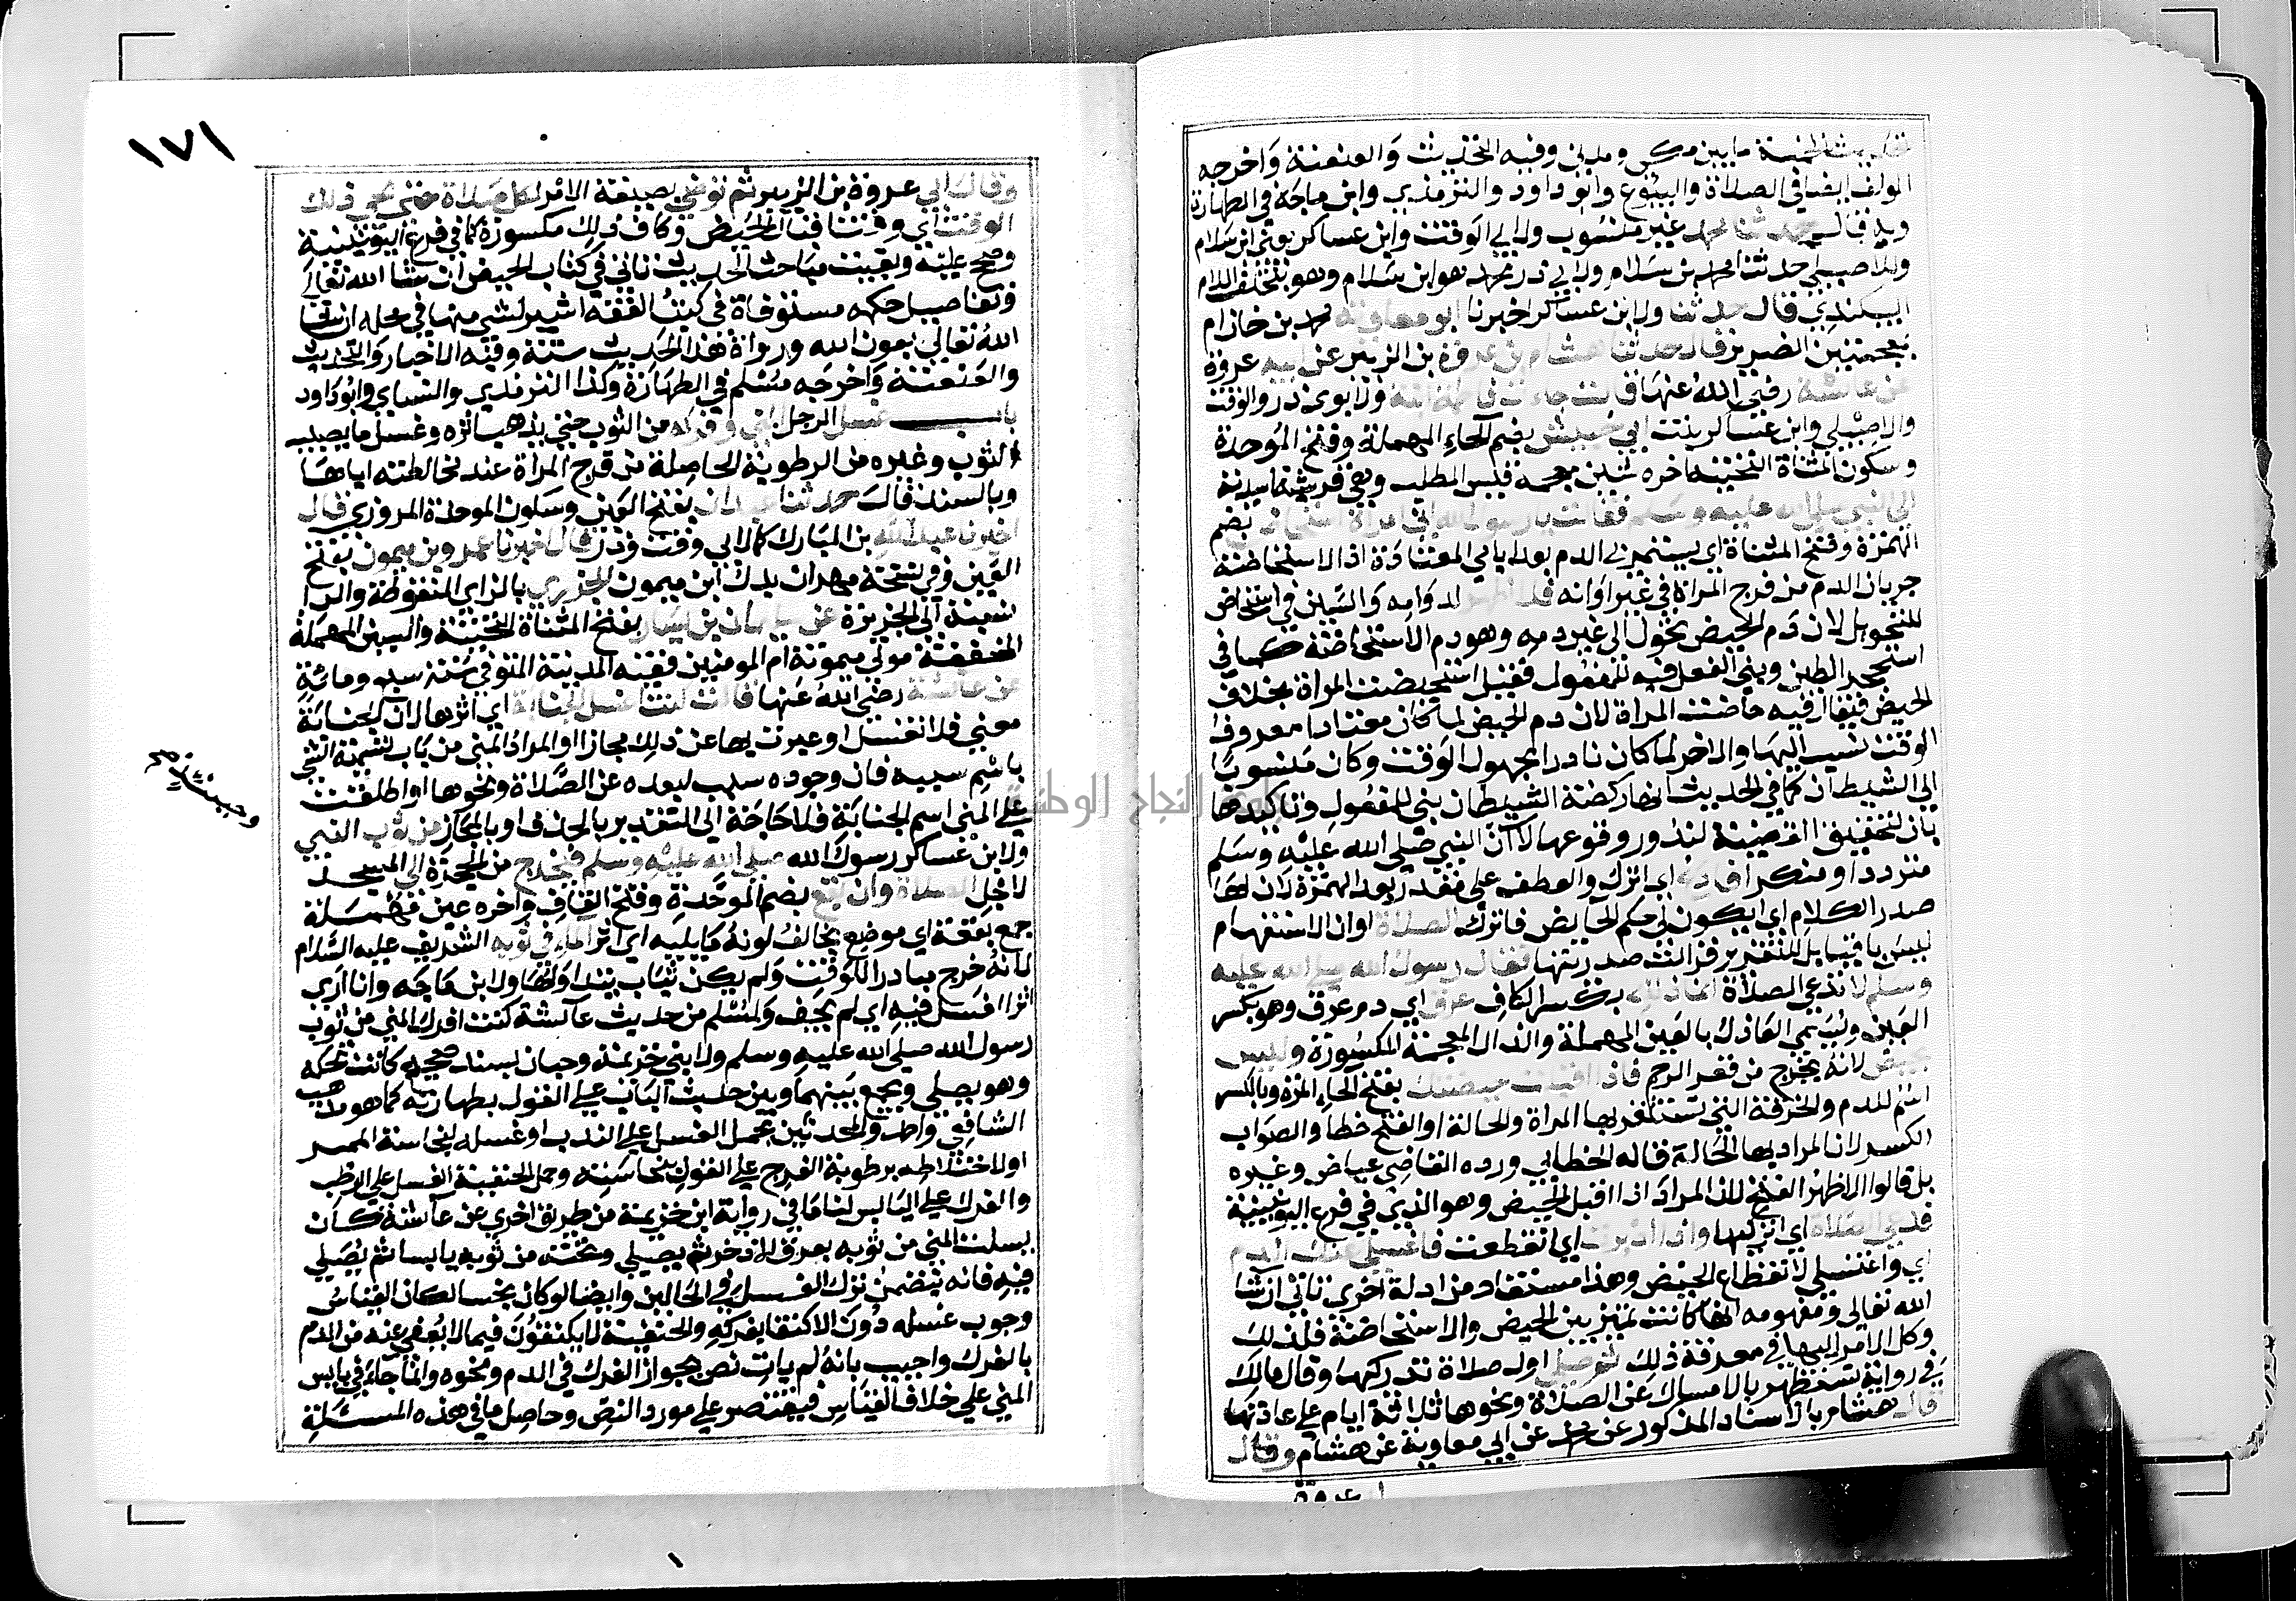 مابين مكي ومدني وفيه التحديث والعنعنة واخرجه
المولف ايضا في الصلاة والبيوع وابو داود والترمذي وابن ماجة في الطهارة
وبه قال حدثنا محمد غير منسوب ولابي الوقت وابن عساكر يعني ابن سلام
وللاصيلي حدثنا محمد بن سلام ولابي ذر محمد هو ابن سلام وهو بتخفيف اللام
البيكندي قال حدثنا ولابن عساكر اخبرنا ابو معاوية محمد بن خازم
بمعجمتين الضرير قال حدثنا هشام بن عروة بن الزبير عن ابيه عروة
عن عائشة رضي الله عنها قالت جاءت فاطمة ابنة ولابوي ذر والوقت
والاصيلي وابن عساكر بنت ابي حبيش بضم الحاء المهملة وفتح الموحدة
وسكون المثناة التحتية اخره شين معجمة قيس المطلب وهي قرشية اسدية
الى النبي صلى الله عليه وسلم فقالت يارسول الله اني امراة استحاض بضم
الهمزة وفتح المثناة اي يستمر بي الدم بعد ايامي المعتادة اذ الاستحاضة
جريان الدم من فرج المراة في غير اوانه فلا اطهر لدوامه والسين في استحاض
للتحويل لان دم الحيض يحول الى غير دمه وهو دم الاستحاضة كما في
استحجر الطين وبني الفعل فيه للمفعول فقيل استحيضت المراة بخلاف
الحيض فيقال فيه حاضت المراة لان دم الحيض لما كان معتادا معروف
الوقت نسب اليها والاخر لما كان نادرا مجهول الوقت وكان منسوبا
الى الشيطان كما في الحديث انها ركضة الشيطان بني للمفعول وتاكيدها
بان لتحقيق القضية لندور وقوعها لا ان النبي صلى الله عليه وسلم
متردد او منكر افادع اي اترك والعطف على مقدر بعد الهمزة لان لها
صدر الكلام اي ايكون لي حكم الحايض فاترك الصلاة او ان الاستفهام
ليس باقيا بل للتقرير فزالت صدريتها فقال رسول الله صلى الله عليه
وسلم لا تدعي الصلاة انما ذلك بكسر الكاف عرق اي دم عرق وهو بكسر
العين ويسمى العاذل بالعين المهملة والذال المعجمة المكسورة وليس
بحيض لانه يخرج من قعر الرحم فاذا اقبلت حيضتك بفتح الحاء المرة وبالكسر
اسم للدم والخرقة التي تستثفر بها المراة والحالة او الفتح خطا والصواب
الكسر لان المراد بها الحالة قاله الخطابي ورده القاضي عياض وغيره
بل قالوا الاظهر الفتح لان المراد اذا اقبل الحيض وهو الذي في فرع اليونينية
فدعي الصلاة اي اتركيها واذا ادبرت اي انقطعت فاغسلي عنك الدم
اي واغتسلي لانقطاع الحيض وهذا مستفاد من ادلة اخرى تاتي ان شا
الله تعالى ومفهومه انها كانت تميز بين الحيض والاستحاضة فلذلك
وكل الامر اليها في معرفة ذلك ثم صلي اول صلاة تدركيها وقال مالك
في رواية تستظهر بالامساك عن الصلاة ونحوها ثلاثة ايام على عادتها
قال هشام بالاسناد المذكور عن محمد عن ابي معاوية عن هشام وقال
ابي عروة
١٧١
وقال ابي عروة بن الزبير ثم توضي بصيغة الامر لكل صلاة حتى يجي ذلك
الوقت اي وقت اقبال الحيض وكاف ذلك مكسورة كما في فرع اليونينية
وصحح عليه وبقيت مباحث الحديث تاتي في كتاب الحيض ان شا الله تعالى
وتفاصيل حكمه مستوفاة في كتب الفقه اشير لشي منها في محله ان شا
الله تعالى بعون الله ورواة هذا الحديث ستة وفيه الاخبار والتحديث
والعنعنة واخرجه مسلم في الطهارة وكذا الترمذي والنساي وابو داود
باب غسل الرجل المني وفركه من الثوب حتى يذهب اثره وغسل ما يصيب
الثوب وغيره من الرطوبة الحاصلة من فرج المراة عند مخالطته اياها
وبالسند قال حدثنا عبدان بفتح العين وسكون الموحدة المروزي قال
اخبرنا عبد الله بن المبارك كما لابي وقت وذر قال اخبرنا عمرو بن ميمون بفتح
العين وفي نسخة مهران بدل ابن ميمون الجزري بالزاي المنقوطة والرا
نسبة الى الجزيرة عن سليمان بن يسار بفتح المثناة التحتية والسين المهملة
المخففة مولى ميمونة ام المومنين فقيه المدينة المتوفى سنة سبع ومائة
عن عائشة رضي الله عنها قالت كنت اغسل الجنابة اي اثرها لان الجنابة
معنى فلا تغسل او عبرت بها عن ذلك مجازا او المراد المني من باب تسمية الشي
باسم سببه فان وجوده سبب لبعده عن الصلاة ونحوها او اطلقت
على المني اسم الجنابة فلا حاجة الى التقدير بالحذف او بالمجاز من ثوب النبي
ولابن عساكر رسول الله صلى الله عليه وسلم فيخرج من الحجرة الى المسجد
لاجل الصلاة وان بقع بضم الموحدة وفتح القاف واخره عين مهملة
جمع بقعة اي موضع يخالف لونه ما يليه اي اثر الماء في ثوبه الشريف عليه السلام
لانه خرج مبادرا للوقت ولم يكن ثياب يتداولها ولابن ماجه وانا ارى
اثر الغسل فيه اي لم يجف ولمسلم من حديث عائشة كنت افرك المني من ثوب
رسول الله صلى الله عليه وسلم ولابني خزيمة وحبان بسند صحيح كانت تحكه
وهو يصلي ويجمع بينهما وبين حديث الباب على القول بطهارته كما هو مذهب
الشافعي واحمد والمحدثين بحمل الغسل على الندب او غسله لنجاسة الممر
او لاختلاطه برطوبة الفرج على القول بنجاسته وحمل الحنفية الغسل على الرطب
والفرك على اليابس لنا ما في رواية ابن خزيمة من طريق اخرى عن عائشة كان
يسلت المني من ثوبه بعرق الاذخر ثم يصلي وتحته من ثوبه يابسا ثم يصلي
فيه فانه يتضمن ترك الغسل في الحالين وايضا لو كان نجسا لكان القياس
وجوب غسله دون الاكتفا بفركه والحنفية لا يكتفون فيما لا يعفى عنه من الدم
بالفرك واجيب بانه لم يات نص بجواز الفرك في الدم ونحوه وانما جاء في يابس
المني على خلاف القياس فيقتصر على مورد النص وحاصل ما في هذه المسئلة
جامعة النجاح الوطنية